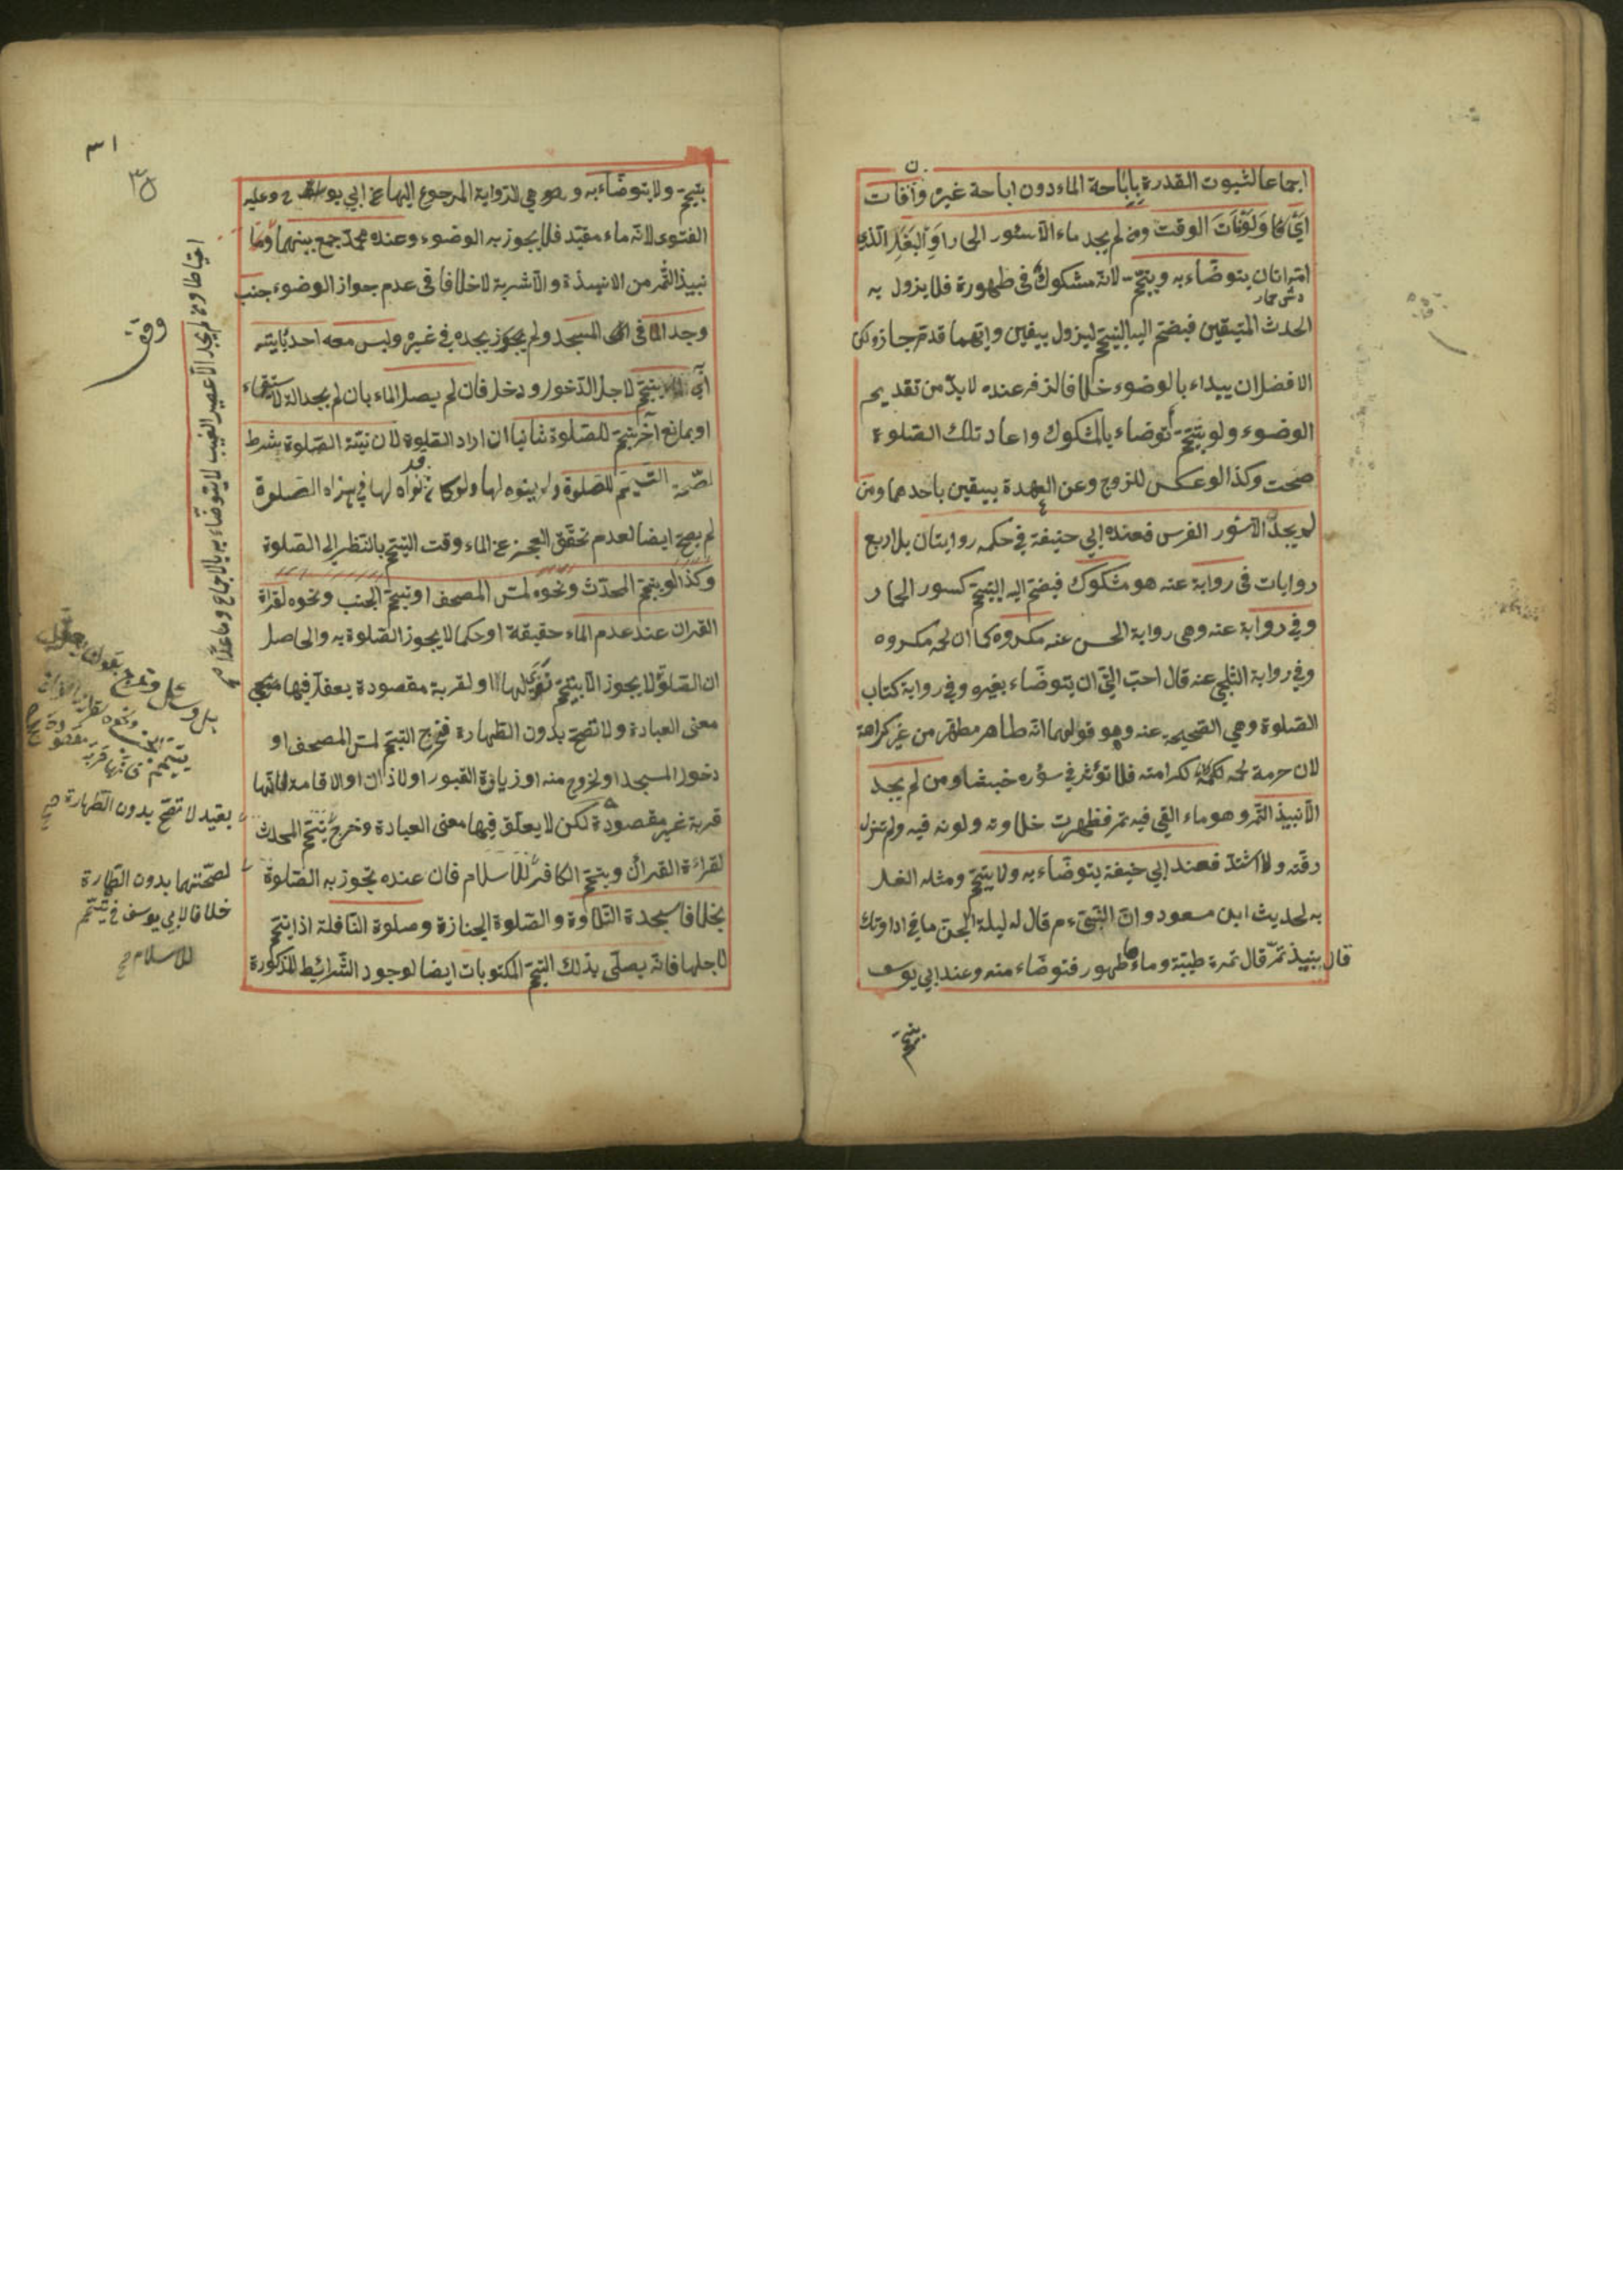 اجماعا لثبوت القدرة باباحة الماء دون اباحة غيره وان فات
الوقت ومن لم يجد ماء الا سؤر الحمار او البغل الذي
امه اتان يتوضاء به ويتيمم لانه مشكوك في طهورة فلا يزول به
الحدث المتيقن فيضم اليه التيمم ليزول بيقين وايهما قدم جاز لكن
الافضل ان يبداء بالوضوء خلافا لزفر عنده لا بد من تقديم
الوضوء ولو تيمم توضاء بالمشكوك واعاد تلك الصلوة
صحت وكذا لو عكس للزوج وعن العهدة بيقين باحدهما ومن
لم يجد الا سؤر الفرس فعند ابي حنيفة في حكمه روايتان بل اربع
روايات في رواية عنه هو مشكوك فيضم اليه التيمم كسور الحمار
وفي رواية عنه وهي رواية الحسن عنه مكروه كما ان لحمه مكروه
وفي رواية الثلجي عنه قال احب الي ان يتوضاء بغيره وفي رواية كتاب
الصلوة وهي الصحيحة عنه وهو قولهما انه طاهر مطهر من غير كراهة
لان حرمة لحمه لكرامته فلا تؤثر في سؤره خبثا ومن لم يجد
الا نبيذ التمر وهو ماء القي فيه تمر فظهرت حلاوته ولونه فيه ولم تزل
رقته ولا اشتد فعند ابي حنيفة يتوضاء به ولا يتيمم ومثله الغسل
به لحديث ابن مسعود وان النبي ءم قال له ليلة الجن ما في اداوتك
قال نبيذ تمر قال تمرة طيبة وماء طهور فتوضاء منه وعند ابي يوسف
يتيمم
٣١
يتيمم ولا يتوضاء به وهو هي الرواية المرجوع اليها عن ابي يوسف ح وعليه
الفتوى لانه ماء مقيد فلا يجوز به الوضوء وعند محمد جمع بينهما وما
نبيذ التمر من الانبذة والاشربة لا خلافا في عدم جواز الوضوء جنب
وجد الماء في المسجد ولم يجده في غيره وليس معه احد يايته
لاجل الدخول ودخل فان لم يصل الماء بان لم يجد الة الاستقاء
او بمانع اخر يتيمم للصلوة ثانيا ان اراد الصلوة لان نية الصلوة شرط
لصحة التيمم للصلوة ولم ينوه لها ولو كان نواه لها في هذه الصلوة
لم يصح ايضا لعدم تحقق العجز عن الماء وقت التيمم بالنظر الى الصلوة
وكذا لو يتيمم المحدث ونحوه لمس المصحف او تيمم الجنب ونحوه لقراة
القران عند عدم الماء حقيقة او حكما لا يجوز الصلوة به والحاصل
ان الصلوة لا يجوز الا بتيمم نوى لها او لقربة مقصودة يعقل فيها
معنى العبادة ولا تصح بدون الطهارة فخرج التيمم لمس المصحف او
دخول المسجد او لخروج منه او زيارة القبور او لاذان او الاقامة فانها
قربة غير مقصودة لكن لا يعلق فيها معنى العبادة وخرج تيمم المحدث
لقراءة القرأن ويتيمم الكافر للاسلام فان عنده تجوز به الصلوة
بخلاف سجدة التلاوة والصلوة الجنازة وصلوة النافلة اذا يتيمم
لاجلها فانه يصلى بذلك التيمم المكتوبات ايضا لوجود الشرائط المذكورة
احتياطا ومن لم يجد الا عصير العنب لا يتوضاء به بالاجماع وما عدا
وقف
بقيد لا تصح بدون الطهارة صح
لصحتهما بدون الطهارة
خلافا لابي يوسف في تيمم
للاسلام صح